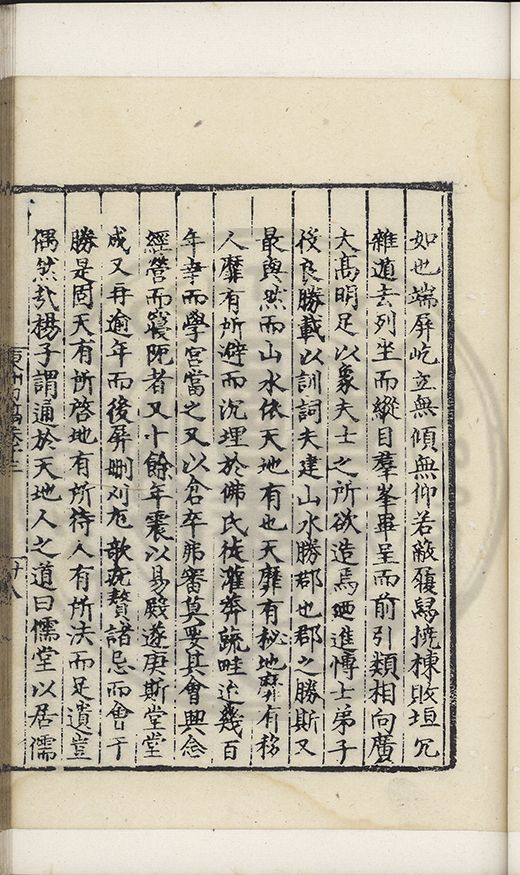 如也端屏屹立無傾無仰若敝履舄撓棟敗垣冗
雜道去列坐而縱目羣峯畢呈而前引類相向廣
大高明足以象夫士之所欲造焉廼進博士弟子
役良勝載以訓詞夫建山水勝郡也郡之勝斯又
最與然而山水依天地有也天靡有秘地靡有移
人靡有所避而沉埋於佛氏徒灌莽蔬畦迄幾百
年幸而學宮當之又以倉卒弗審莫要其會興念
經營而寢阨者又十餘年震以易殿遂庚斯堂堂
成又再逾年而後屏刪刈冗欹疣贅諸忌而會于
勝是固天有所啓地有所待人有所法而足遺豈
偶然哉楊子謂通於天地人之道曰儒堂以居儒
十八